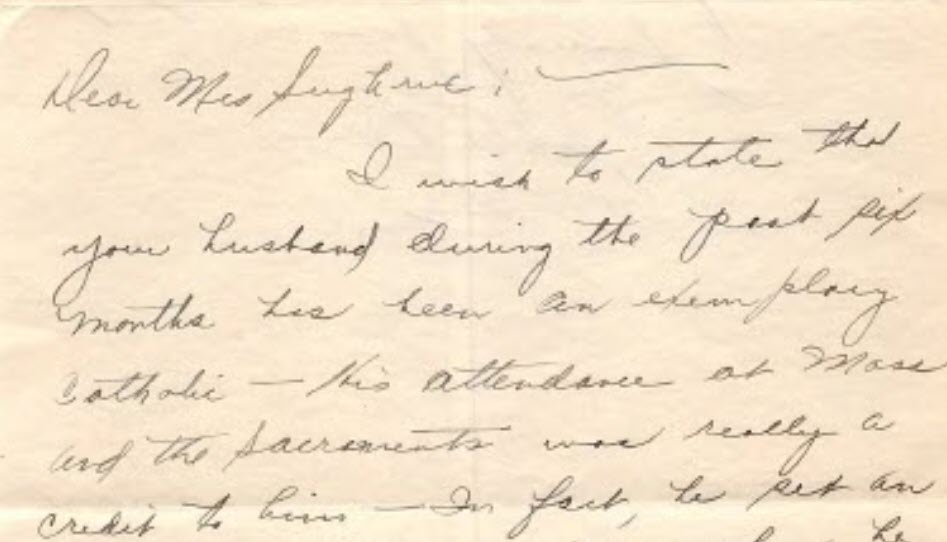 Dear Mrs Sughrue; —
I wish to state that
your husband during the past six
months has been an exemplary
Catholic — His attendance at Mass
and the Sacraments was really a
credit to him — In fact, he set an
he